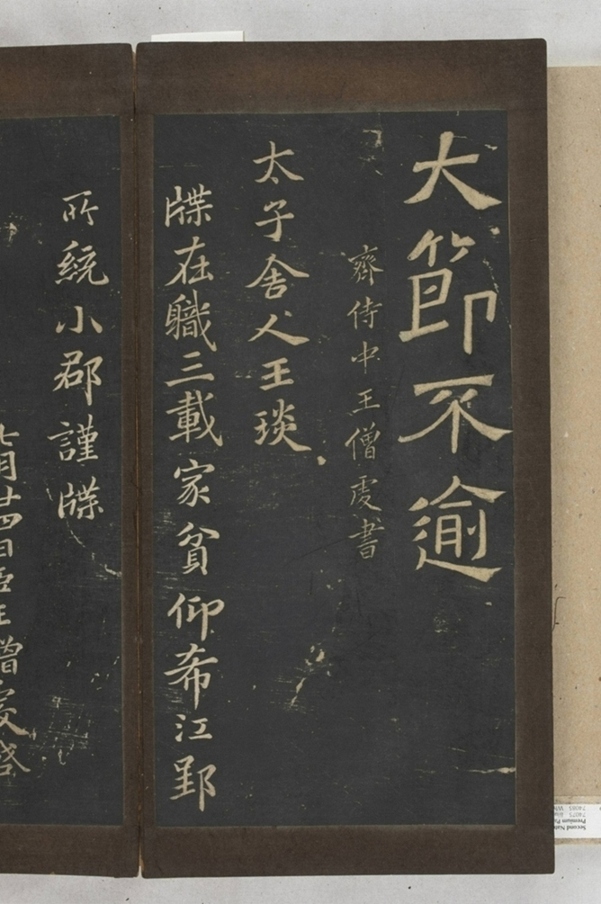 大節不逾
齊侍中王僧虔書
太子舍人王琰
牒在職三載家貧仰希江郢
所統小郡謹牒
七月廿四日臣王僧虔啓